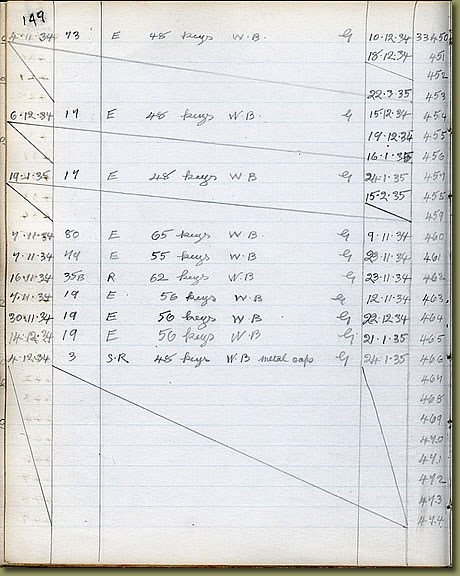 149
4·11·34 73 E 48 keys W.B. G 10·12·34 33450
18·12·34 451
452
22·3·35 453
6·12·34 17 E 48 keys W.B G 15·12·34 454
19·12·34 455
16·1·35 456
19·1·35 17 E 48 keys W B G 24·1·35 457
15·2·35 458
459
7·11·34 80 E 65 keys W B. G 9·11·34 460
7·11·34 E 55 keys W.B G 23·11·34 461
16·11·34 35B R 62 keys W.B G 23·11·34 462
7·11·34 19 E 56 keys W B G 12·11·34 463
30·11·34 19 E 56 keys W B G 22·12·34 464
14·12·34 19 E 56 keys W B G 21·1·35 465
4·12·34 3 S.R 48 keys W·B metal caps G 24·1·35 466
467
468
469
470
471
472
473
474